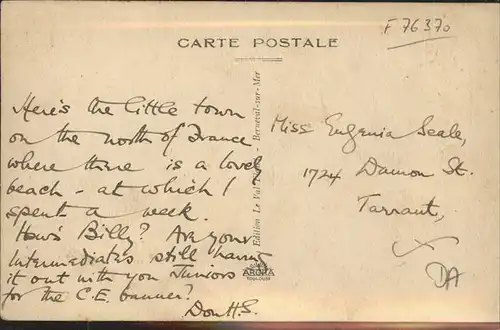 F 76370
CARTE POSTALE
Here's the little town
on the north of France
where there is a lovely
beach - at which I
spent a week.
How's Billy? Are your
Intermediates still having
it out with you Juniors
for the C.E. banner?
Don H.S.
Edition Le Val - Berneval-sur-Mer
ARDITA
TOULOUSE
Miss Eugenia Seale,
1724 Damon St.
Tarrant,